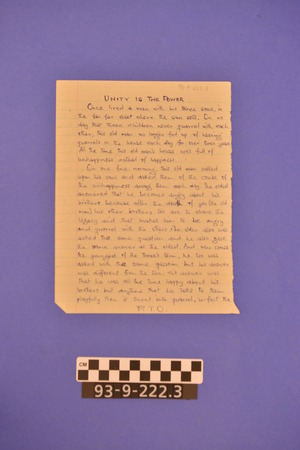 UNITY IS THE POWER
Once lived a man with his three sons, in
the far far east where the sun sets. On no
day that these children never quarrel with each
other, this old man no happy fed up of hearing
quarrels in the house each day for
All the time this old man's house was full of
unhappiness instead of happiness.
On one fine morning, this old man called
upon his sons and asked them of the cause of
the unhappiness among them each day. The eldest
answered that he becomes angry about his
brothers because after the death of you the old
man, his other brothers too are to share the
legacy and that makes him to be angry
and quarrel with the others. The elder also was
asked that same question and he also gave
the same answer as the eldest. And now comes
the youngest of the three's turn, he too was
asked with that same question but his answer
was different from the two. His answer was
that he was all the time happy about his
brothers but anytime that he talks to them
playfully then it turns into quarrel, in fact the
P.T.O.
CM
93-9-222.3